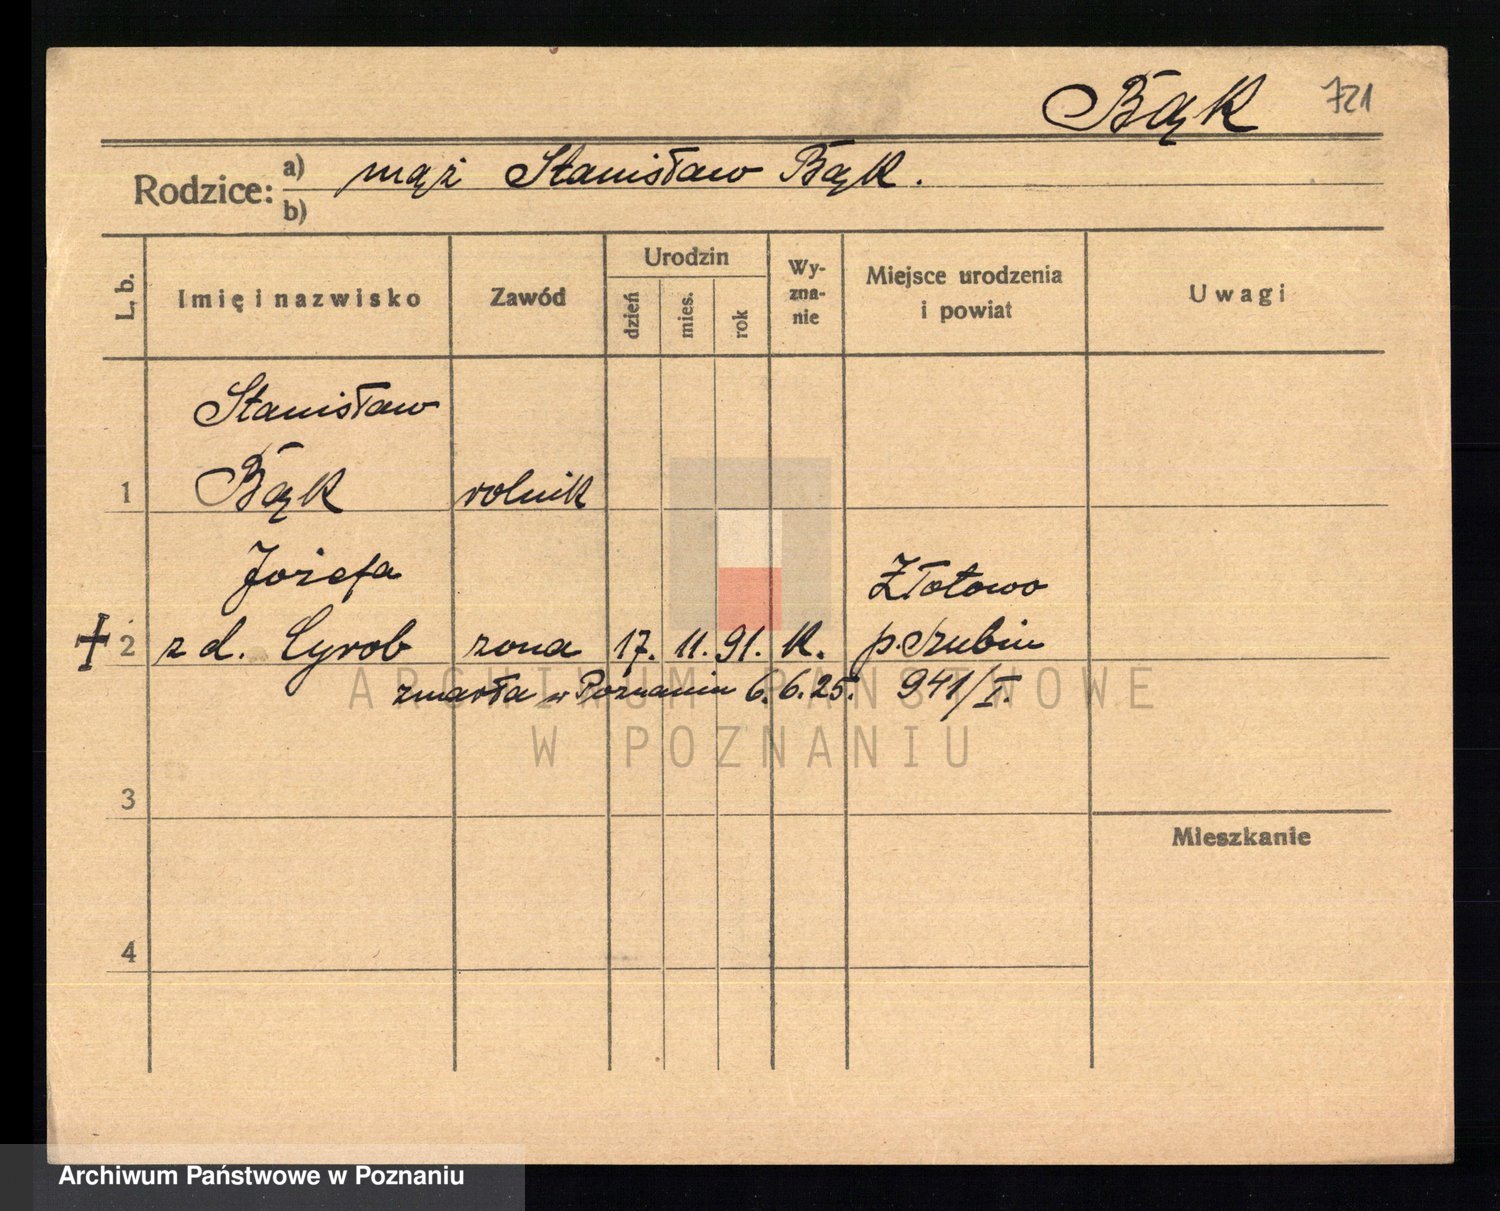 Bąk 721
Rodzice: a) mąż Stanisław Bąk.
b)
L. b. Imię i nazwisko Zawód Urodzin dzień mies. rok Wy-zna-nie Miejsce urodzenia i powiat Uwagi
Stanisław
1 Bąk rolnik
Józefa Złotowo
2 z d. Cyrob żona 17. 11. 91. K. p. Szubin
zmarła w Poznaniu 6.6.25. 941/I.
ARCHIWUM PAŃSTWOWE
W POZNANIU
3
Mieszkanie
4
Archiwum Państwowe w Poznaniu